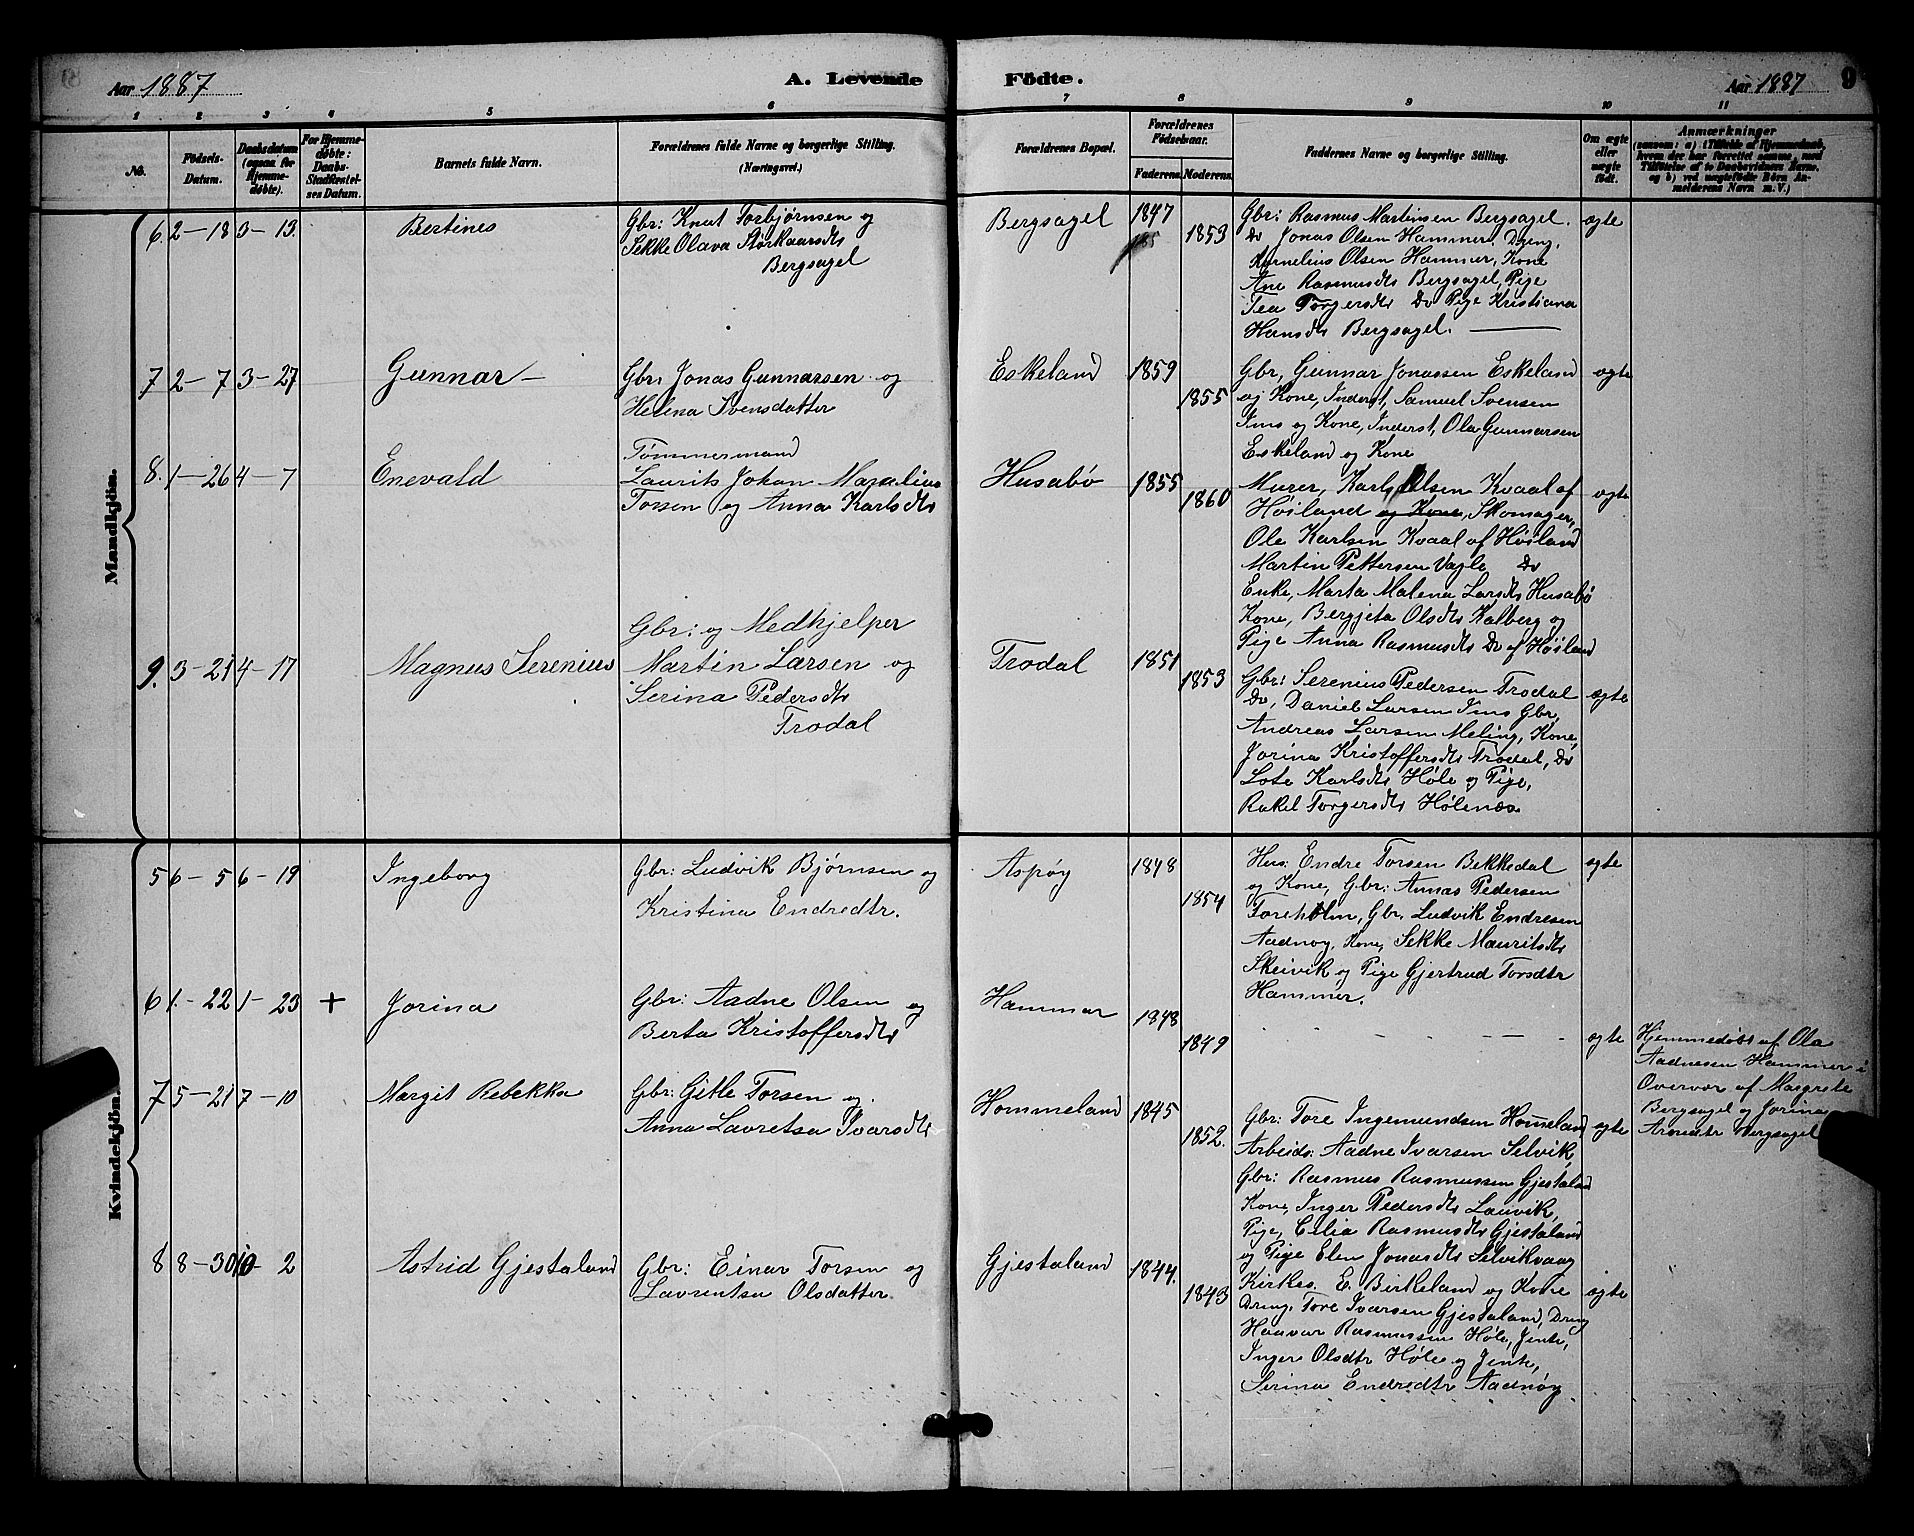 Aar 1887 A. Levende Födte. Aar 1887 9
1 2 3 4 5 6 7 8 9 10 11
No. Födsels-Datum. Daabsdatum (ogsaa for Hjemme-döbte). For Hjemme-döbte: Daabs-Stadfæstelses Datum. Barnets fulde Navn. Forældrenes fulde Navne og borgerlige Stilling. (Næringsvei.) Forældrenes Bopæl. Forældrenes Födselsaar. Faderens. Moderens. Faddernes Navne og borgerlige Stilling. Om ægte eller uægte födt. Anmærkninger
Mandkjön.
6. 2-18 3-13. Bertines
Gbr: Knut Torbjørnsen og
Sekke Olava Storkaarsdtr
Bergsagel
Bergsagel 1847 1853
Gbr: Rasmus Martinsen Bergsagel. ægte
Do Jonas Olsen Hammer, Dreng,
Kornelius Olsen Hammer, Kone
Ane Rasmusdtr Bergsagel, Pige
Tea Torgersdtr Do Pige Kristiana
Hansdtr Bergsagel.
7 2-7 3-27 Gunnar
Gbr: Jonas Gunnarsen og
Helena Svensdatter
Eskeland 1859 1855
Gbr, Gunnar Jonassen Eskeland ægte
og Kone, Inderst, Samuel Svensen
Ims og Kone, Inderst, Ola Gunnarsen
Eskeland og Kone
8. 1-26 4-7 Enevald
Tømmermand
Laurits Johan
Torsen og Anna Karlsdtr
Husabø 1855 1860
Murer, Karl Olsen Kvaal af ægte
Høiland og Kone, Skomager,
Ole Karlsen Kvaal af Høiland
Martin Pettersen Vagle Do
Enke, Marta Malena Larsdtr Husabø
Kone, Bergjeta Olsdtr Kalberg og
Pige Anna Rasmusdtr Do af Høiland
9. 3-21 4-17 Magnus Serenius
Gbr: og Medhjelper
Martin Larsen og
Serina Pedersdtr
Trodal
Trodal 1851 1853
Gbr: Serenius Pedersen Trodal ægte
Do, Daniel Larsen Ims Gbr,
Andreas Larsen Meling, Kone,
Jorina Kristoffersdtr Trodal, Do
Lote Karlsdtr Høle og Pige,
Rakel Torgersdtr Hølenæs
Kvindekjön.
5 6-5 6-19 Ingeborg
Gbr: Ludvik Bjørnsen og
Kristina Endredtr.
Aspøy 1848 1854
Hus: Endre Torsen Bekkedal ægte
og Kone, Gbr: Annas Pedersen
Foreholm, Gbr, Ludvik Endresen
Aadnøy, Kone, Sekke Mauritsdtr
Skeivik og Pige Gjertrud Torsdtr
Hammer.
6 1-22 1-23 + Jorina
Gbr: Aadne Olsen og
Berta Kristoffersdtr
Hammar 1848 1849
ægte
Hjemmedøbt af Ola
Aadnesen Hammer i
Overvær af Margrete
Bergsagel og Jorina
Bergsagel
7 5-21 7-10 Margit Rebekka
Gbr: Gitle Torsen og
Anna Lavretsa Ivarsdtr
Hommeland 1845 1852.
Gbr: Tore Ingemundsen Homeland ægte
Arbeids: Aadne Ivarsen Selvik,
Gbr: Rasmus Rasmussen Gjestaland
Kone, Inger Pedersdtr Lauvik,
Pige, Cilia Rasmusdtr Gjestaland
og Pige Elen Jonasdtr Selvikvaag
8 8-30 10-2 Astrid Gjestaland
Gbr: Einar Torsen og
Lavrentsa Olsdatter.
Gjestaland 1844. 1843
Kirkes. E. Birkeland og Kone ægte
Dreng, Tore Ivarsen Gjestaland, Dreng
Haavar Rasmussen Høle, Jente,
Inger Olsdtr Høle og Jente,
Serina Endredtr Aadnøy